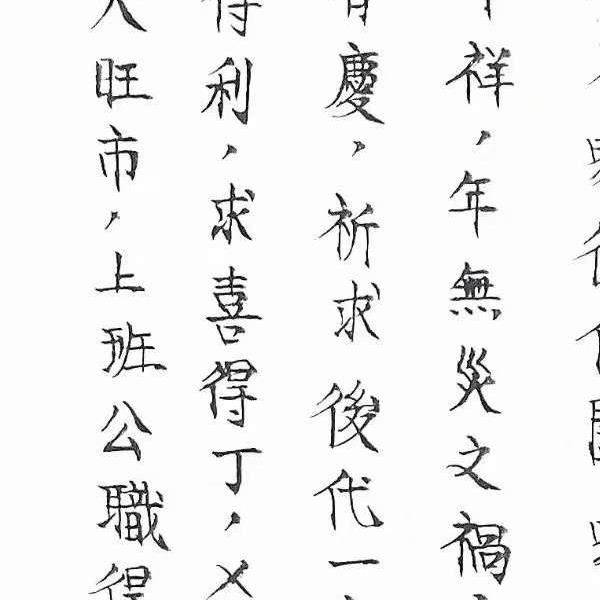 祥，年無災文禍
慶，祈求後代一
利，求喜得丁，
旺市，上班公職得